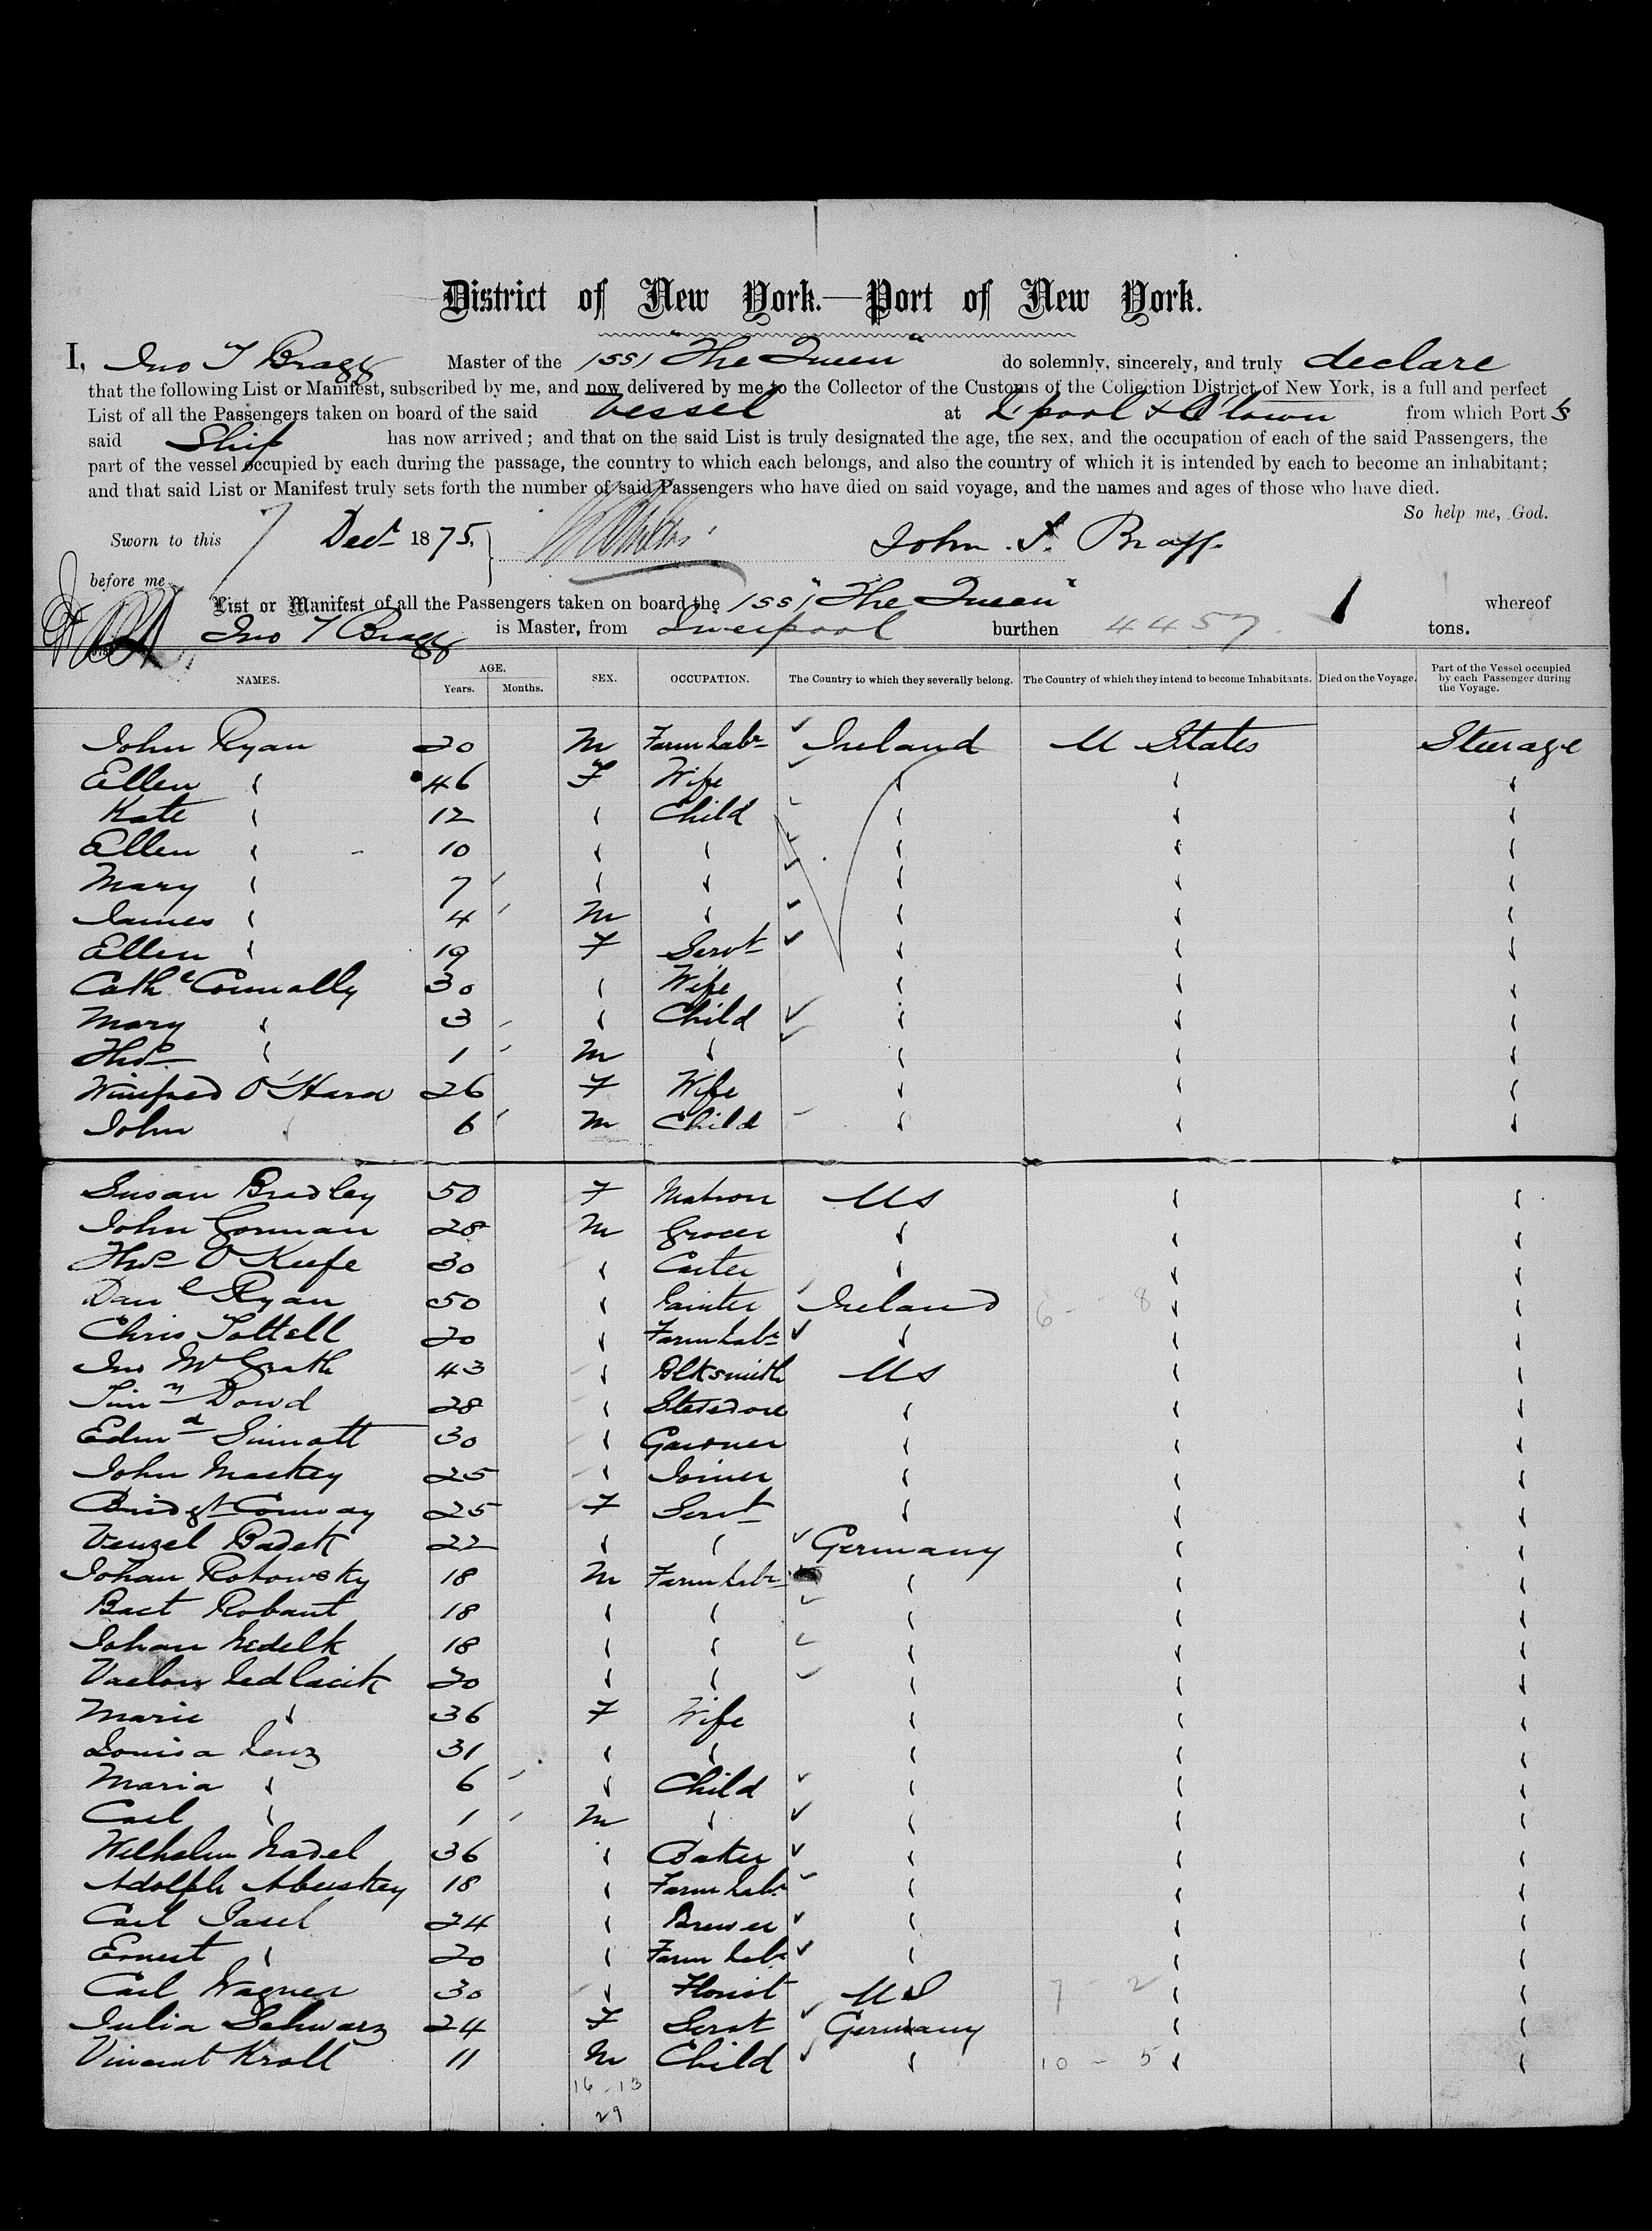 District of New York.—Port of New York.
I, Jno T Bragg Master of the "The Queen" do solemnly, sincerely, and truly declare
that the following List or Manifest, subscribed by me, and now delivered by me to the Collector of the Customs of the Collection District of New York, is a full and perfect
List of all the Passengers taken on board of the said Vessel at L'pool & Q'town from which Port's
said Ship has now arrived; and that on the said List is truly designated the age, the sex, and the occupation of each of the said Passengers, the
part of the vessel occupied by each during the passage, the country to which each belongs, and also the country of which it is intended by each to become an inhabitant;
and that said List or Manifest truly sets forth the number of said Passengers who have died on said voyage, and the names and ages of those who have died.
So help me, God.
Sworn to this 7 Decr 1875, John. T. Bragg.
before me
List or Manifest of all the Passengers taken on board the "The Queen" whereof
Jno T Bragg is Master, from Liverpool burthen 4457 tons.
NAMES. AGE. Years. Months. SEX. OCCUPATION. The Country to which they severally belong. The Country of which they intend to become Inhabitants. Died on the Voyage. Part of the Vessel occupied by each Passenger during the Voyage.
John Ryan 20 M Farm Labr Ireland U States Steerage
Ellen " 46 F Wife " " "
Kate " 12 " Child " " "
Ellen " 10 " " " " "
Mary " 7 " " " " "
James " 4 M " " " "
Ellen " 19 F Servt " " "
Cathe Connolly 30 " Wife " " "
Mary " 3 " Child " " "
Thos " 1 M " " " "
Winifred O'Hara 26 F Wife " " "
John " 6 M Child " " "
Susan Bradley 50 F Matron US " "
John Gorman 28 M Grocer " " "
Thos O'Keefe 30 " Carter " " "
Danl Ryan 50 " Painter Ireland 6 - 8 " "
Chris Tottell 20 " Farm Labr " " "
Jno McGrath 43 " Blksmith US " "
Timy Dowd 28 " Stevedore " " "
Edmd Sinnott 30 " Gardner " " "
John Mackey 25 " Joiner " " "
Bridgt Conway 25 F Servt " " "
Venzel Badek 22 " " Germany " "
Johan Rotowsky 18 M Farm Labr " " "
Bact Robant 18 " " " " "
Johan Nedelk 18 " " " " "
20 " " " " "
Marie " 36 F Wife " " "
Louisa Lenz 31 " " " " "
Maria " 6 " Child " " "
Carl " 1 M " " " "
Wilhelm Nadel 36 " Baker " " "
Adolph 18 " Farm Labr " " "
Carl Pasel 24 " Brewer " " "
Ernest " 20 " Farm Labr " " "
Carl Wagner 30 " Florist US 7 - 2 " "
Julia Schwarz 24 F Servt Germany " "
Vincent Kroll 11 M Child " 10 - 5 " "
16 - 13
29